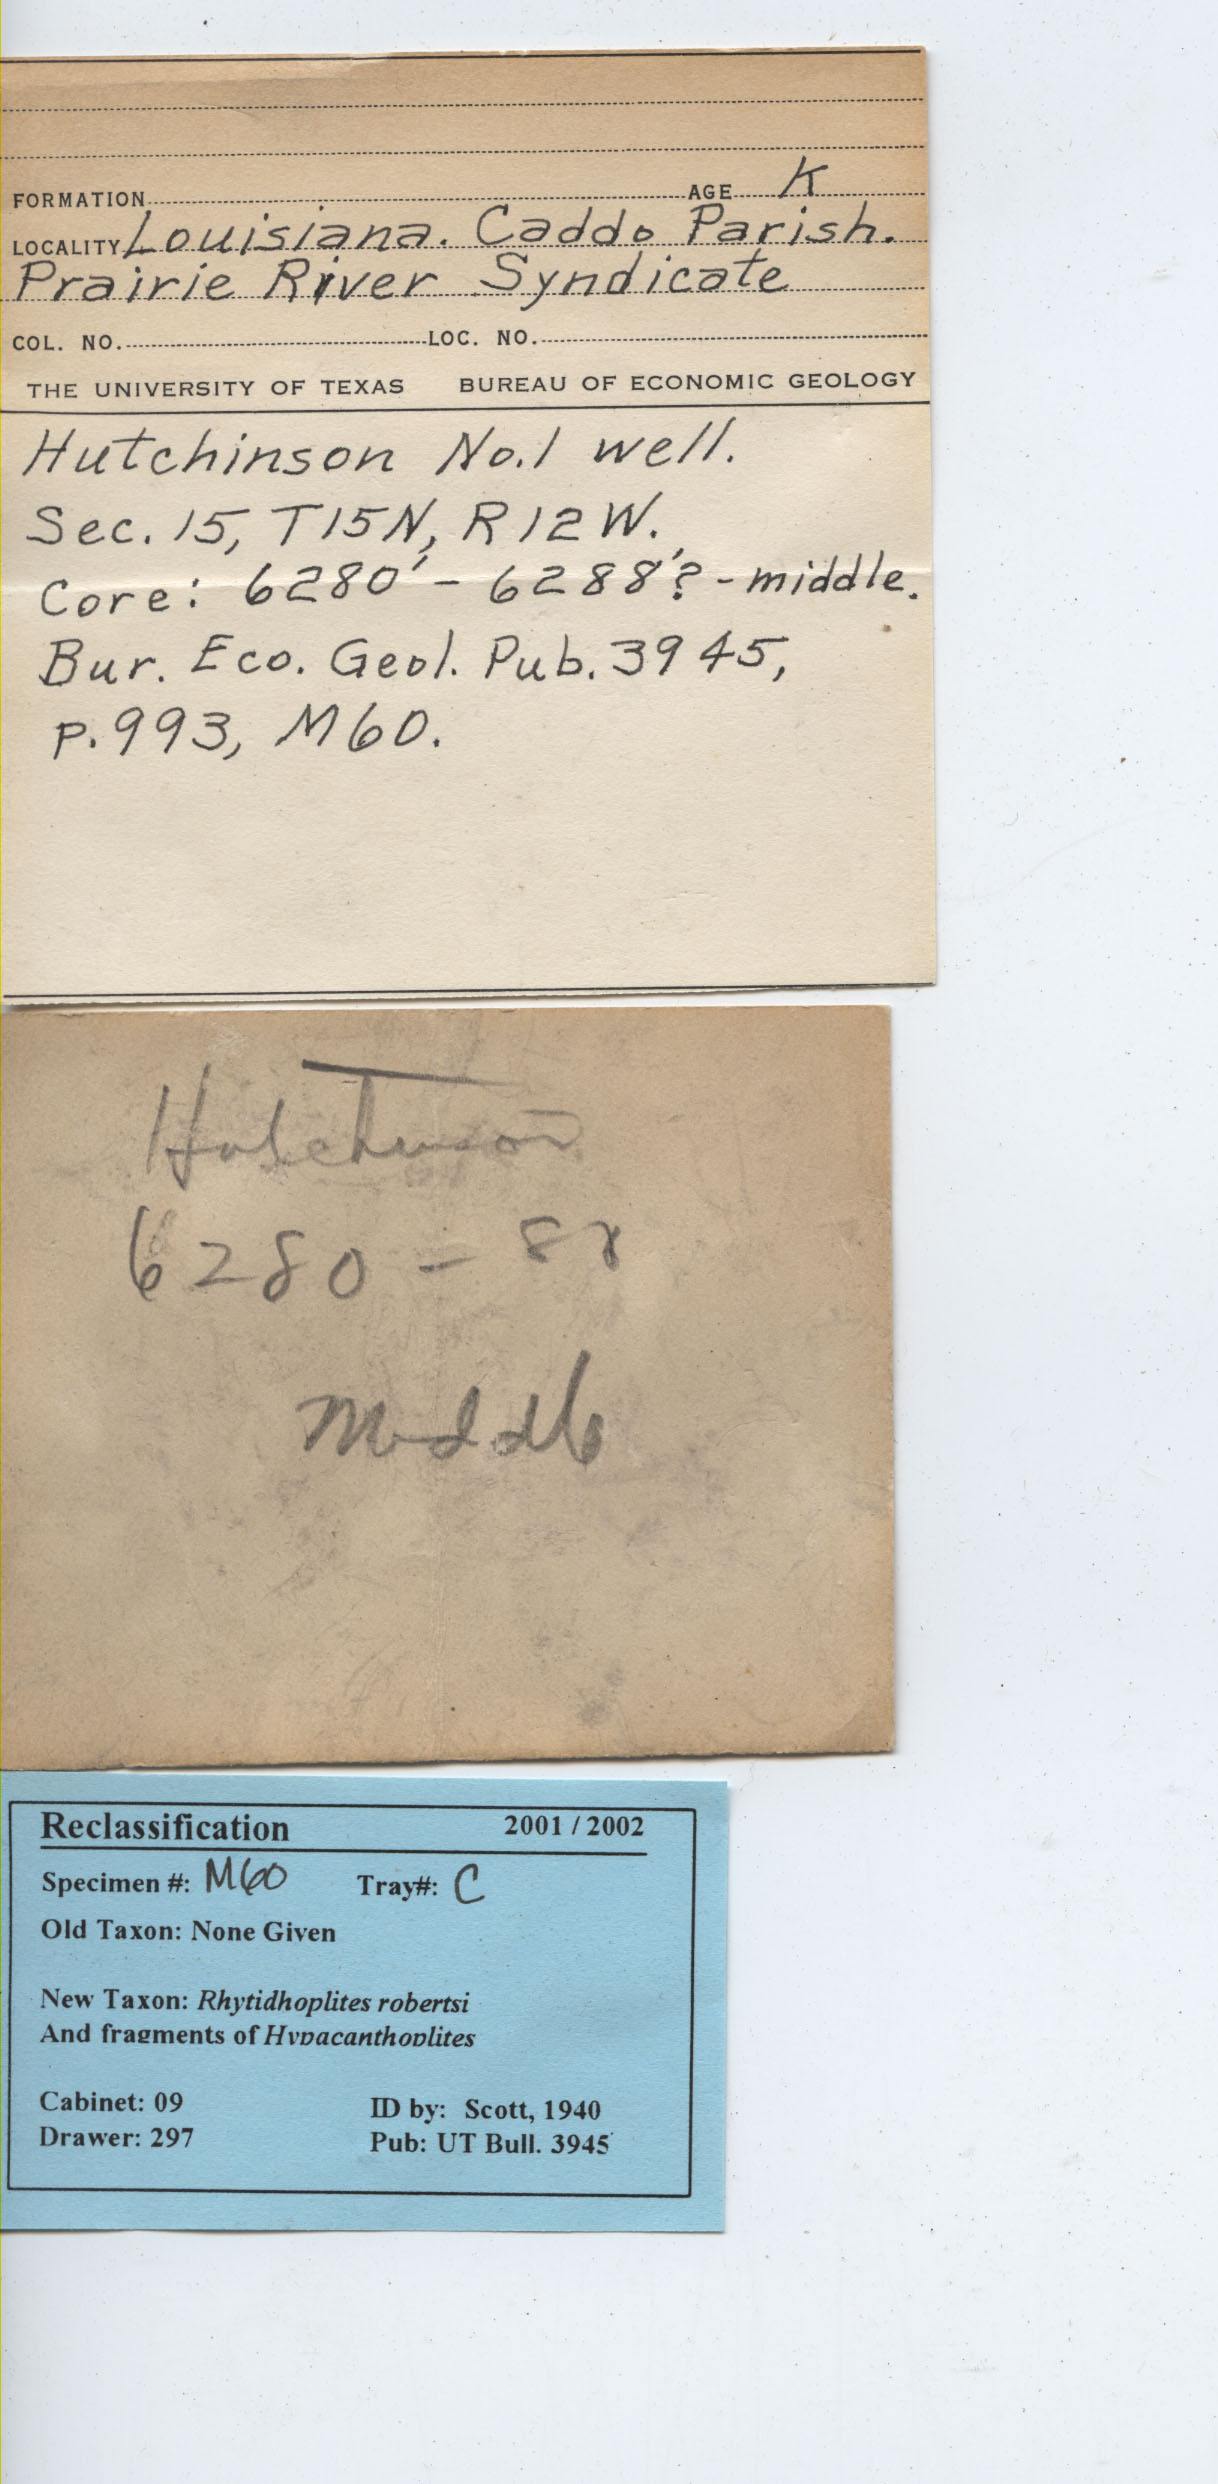 FORMATION AGE K
LOCALITY Louisiana. Caddo Parish.
Prairie River Syndicate
COL. NO. LOC. NO.
THE UNIVERSITY OF TEXAS BUREAU OF ECONOMIC GEOLOGY
Hutchinson No.1 well.
Sec. 15, T15N, R12W.
Core: 6280' - 6288'? - middle.
Bur. Eco. Geol. Pub. 3945,
p. 993, M60.
Hutchinson
6280 - 88
Middle
Reclassification 2001 / 2002
Specimen #: M60 Tray#: C
Old Taxon: None Given
New Taxon: Rhytidhoplites robertsi
And fragments of Hypacanthoplites
Cabinet: 09 ID by: Scott, 1940
Drawer: 297 Pub: UT Bull. 3945